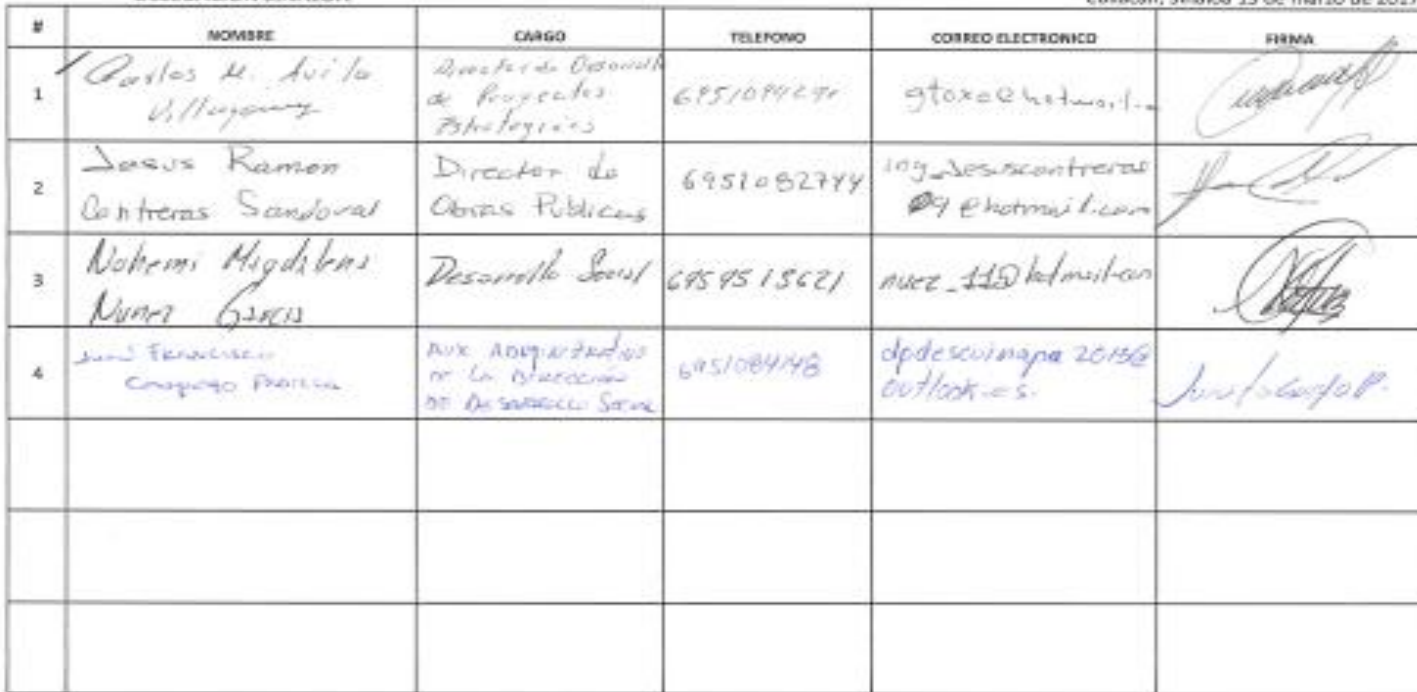 Culiacán, Sinaloa 15 de marzo de 2017
# NOMBRE CARGO TELEFONO CORREO ELECTRONICO FIRMA
1
Carlos M. Avila
Director de Desarrollo
de Proyectos
Estrategicos
gtoxo@hotmail.
2
Jesus Ramon
Contreras Sandoval
Director de
Obras Públicas
6951082744
ing_jesuscontreras
09@hotmail.com
3
Nohemi Migdalena
Nunez Garcia
Desarrollo Social
6959513621
nuez_11@hotmail.com
4
Juan Francisco
Padilla
Aux Administrativo
de la Dirección
de Desarrollo Social
6951084148
dpdescuinapa2015@
outlook.es.